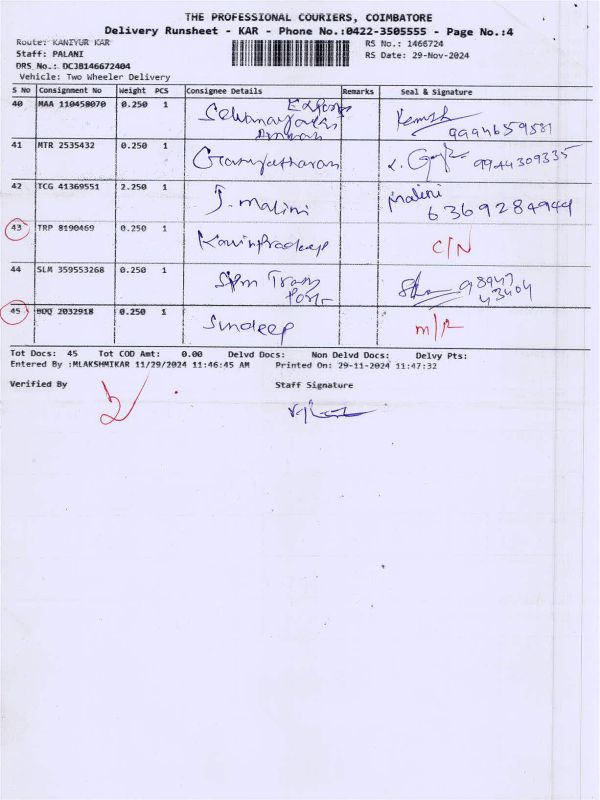 THE PROFESSIONAL COURIERS, COIMBATORE
Delivery Runsheet - KAR - Phone No.:0422-3505555 - Page No.:4
Route: KANIYUR KAR RS No.: 1466724
Staff: PALANI RS Date: 29-Nov-2024
DRS No.: DC3B146672404
Vehicle: Two Wheeler Delivery
S No Consignment No Weight PCS Consignee Details Remarks Seal & Signature
40 MAA 110458070 0.250 1
9994659581
41 MTR 2535432 0.250 1
9944309335
42 TCG 41369551 2.250 1 J. malini Malini
6369284944
43 TRP 8190469 0.250 1 Kavinpradeep C/N
44 SLM 359553268 0.250 1 Spm Trans
Port 98947
43404
45 BDQ 2032918 0.250 1 Sundeep
Tot Docs: 45 Tot COD Amt: 0.00 Delvd Docs: Non Delvd Docs: Delvy Pts:
Entered By :MLAKSHMIKAR 11/29/2024 11:46:45 AM Printed On: 29-11-2024 11:47:32
Verified By Staff Signature
2